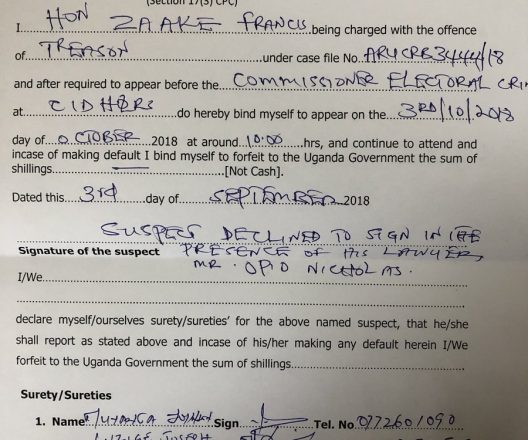 (Section 17(3) CPC)
I HON ZAAKE FRANCIS being charged with the offence
of TREASON under case file No. ARU CRB 3444/18
and after required to appear before the COMMISSIONER ELECTORAL CRI
at CID HQRS do hereby bind myself to appear on the 3RD/10/2018
day of OCTOBER 2018 at around 10:00 hrs, and continue to attend and
incase of making default I bind myself to forfeit to the Uganda Government the sum of
shillings [Not Cash].
Dated this 3rd day of SEPTEMBER 2018
SUSPECT DECLINED TO SIGN IN THE
Signature of the suspect PRESENCE OF HIS LAWYER,
MR. OPIO NICHOLAS.
I/We
declare myself/ourselves surety/sureties' for the above named suspect, that he/she
shall report as stated above and incase of his/her making any default herein I/We
forfeit to the Uganda Government the sum of shillings
Surety/Sureties
1. Name Sign Tel. No 0772601090
JOSEPH